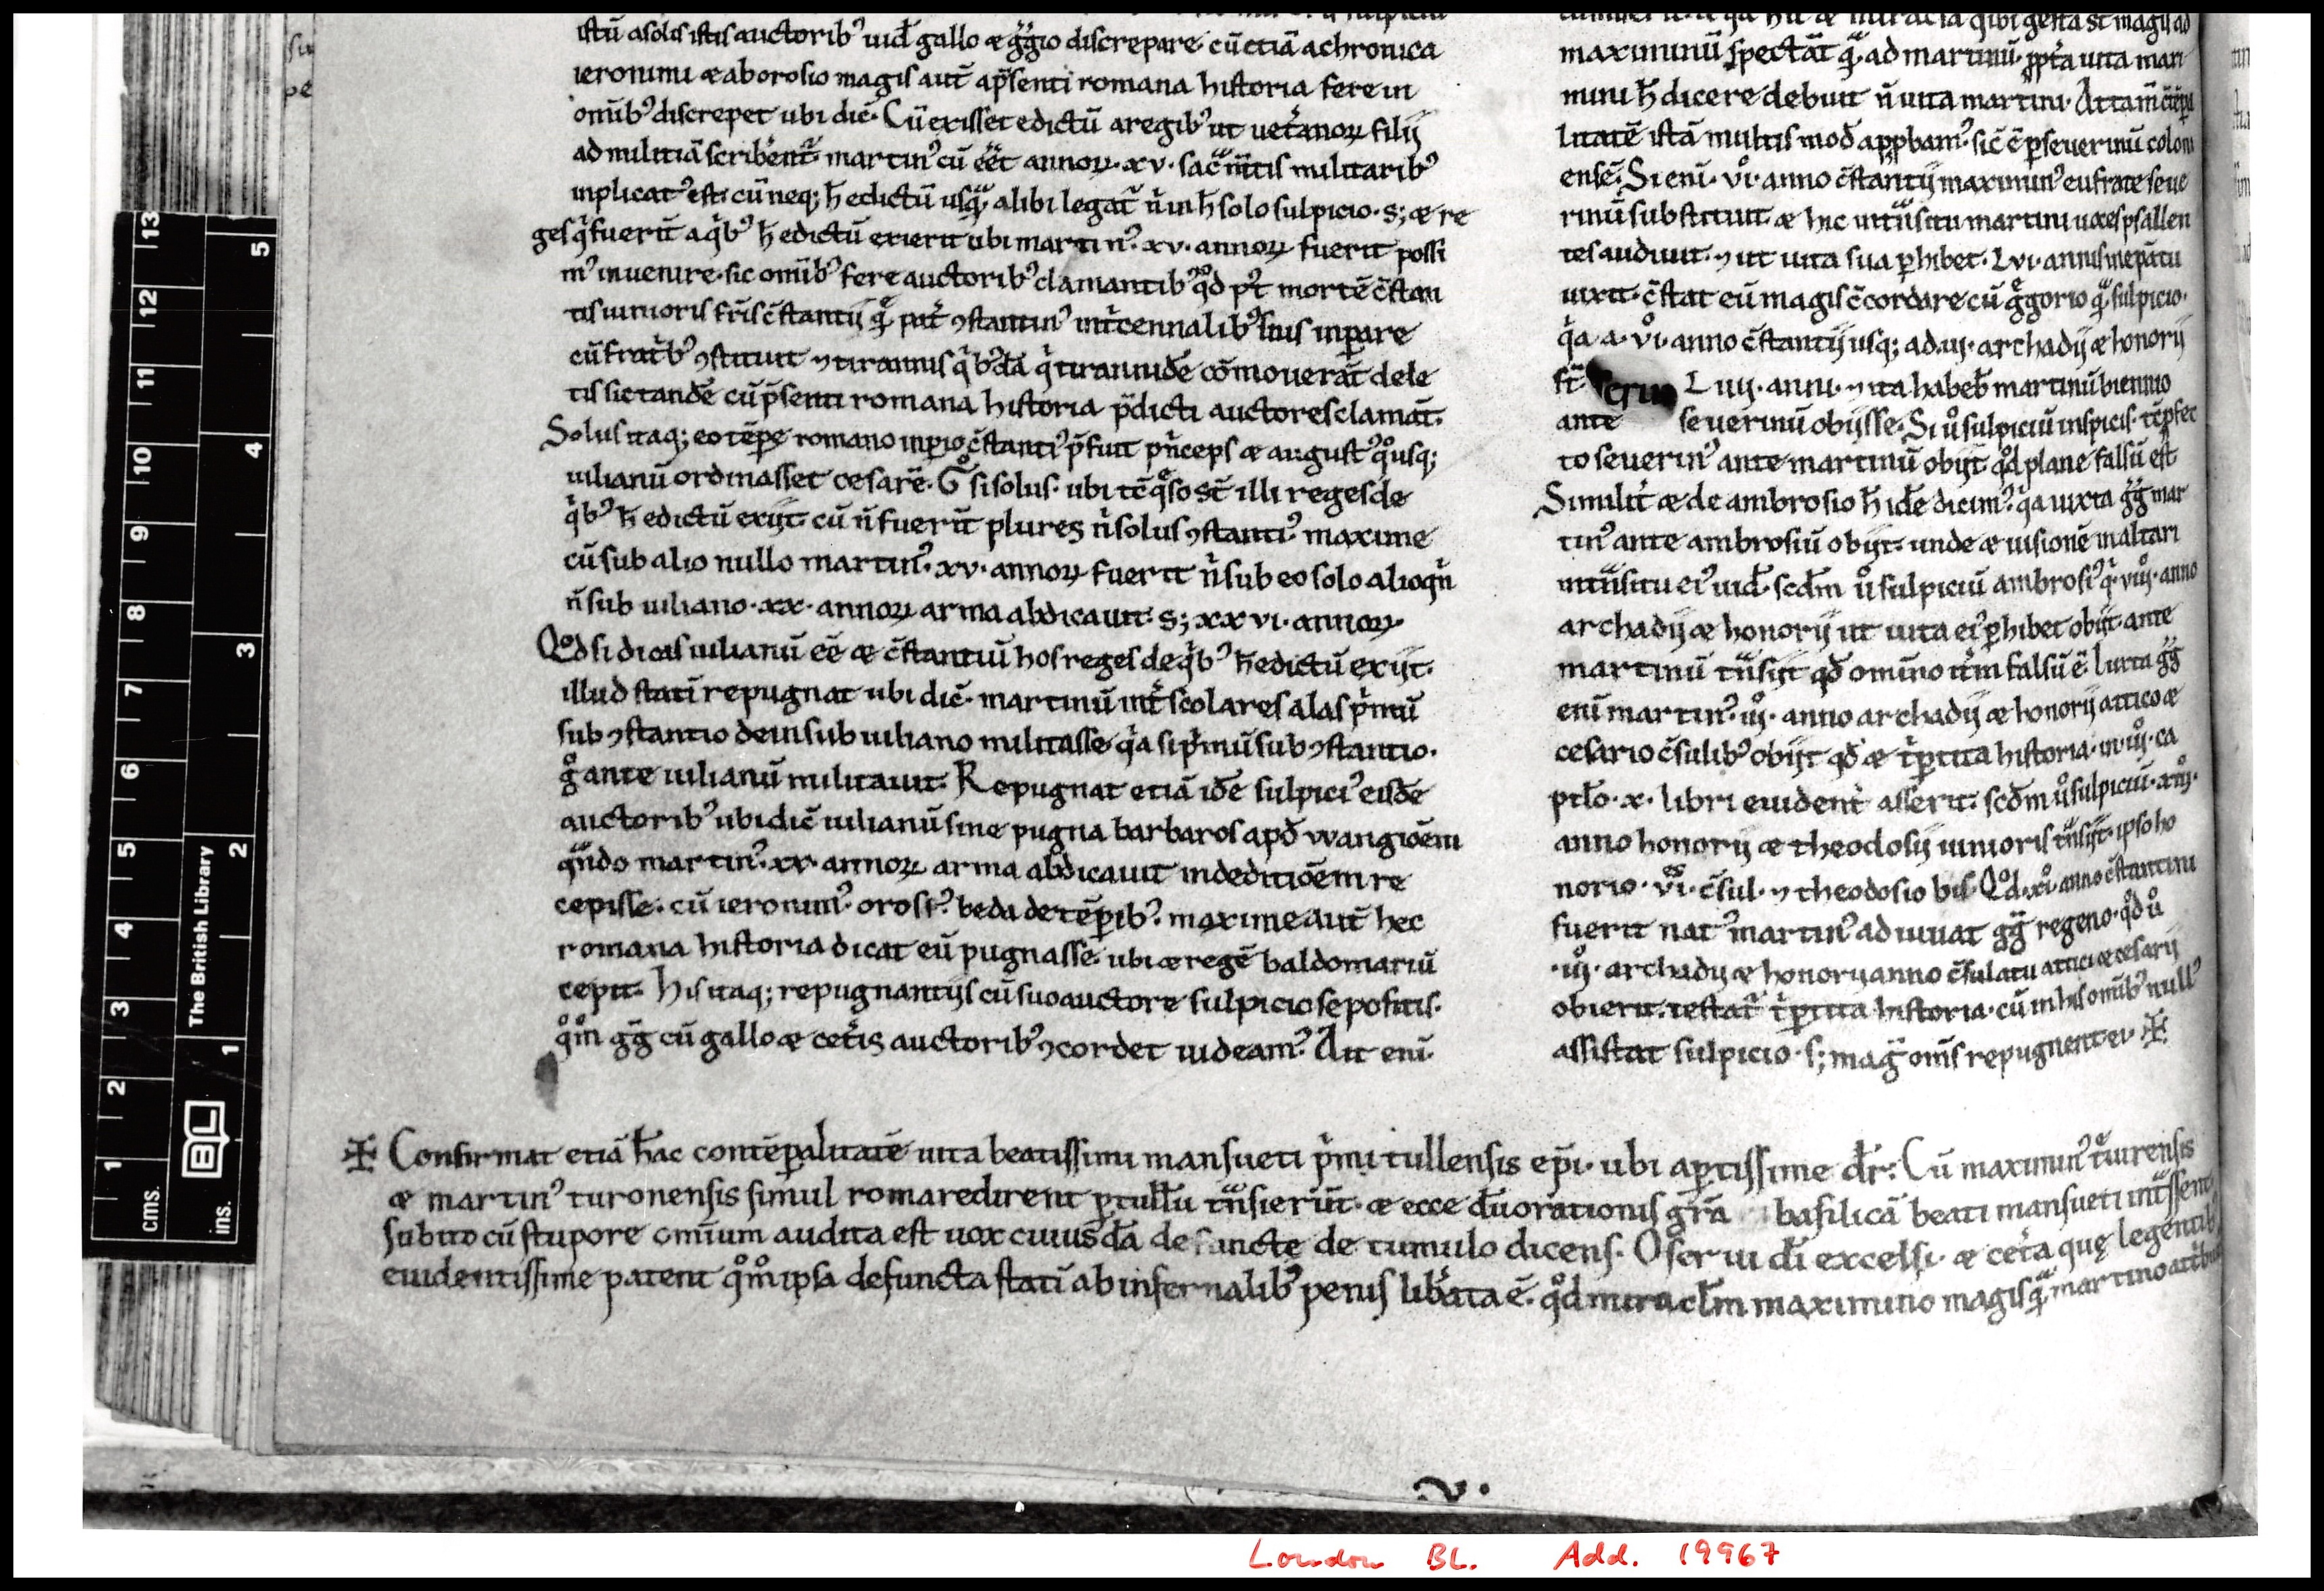 istū a solis istis auctorib᾿ uid̄ gallo æ gͥgͥio discrepare cū etiā a chronica
ieronimi æ ab orosio magis aut̄ a p̄senti romana historia fere in
om̄ib᾿ discrepet ubi dic̄. Cū exisset edictū a regib᾿ ut uet̄anoꝝ filij
ad militiā scriberent᷑ martin᾿ cū eēt annoꝝ. xv. sac̄m̄tis militarib᾿
inplicat᾿ est. cū neq; h̄ edictū usqᷓ alibi legat᷑ n̄ in h̄ solo sulpicio. s; æ re
ges q̄ fuerīt a qͥb᾿ h̄ edictū exierit ubi martin᾿. xv. annoꝝ fuerit possi
m᾿ inuenire. sic om̄ib᾿ fere auctorib᾿ clamantib᾿ qͦd pͭ mortē c̄stan
tis iunioris fr̄is c̄stantij
cū frat̄b᾿ ꝯstituit ⁊ tirannis qͥb᾿dā q̄ tirannidē cōmouerāt dele
tis sic tandē cū p̄senti romana historia p̄dicti auctores clamāt.
Solus itaq; eo tēpe romano inpio c̄stanti᾿ p̄fuit pͥnceps æ august᾿ qͦusq;
iulianū ordinasset cesarē. Gͦ si solus. ubi tc̄ qͦso st̄ illi reges de
qͥb᾿ h̄ edictū exijt. cū n̄ fuerīt plures nͥ solus ꝯstanti᾿ maxime
cū sub alio nullo martin᾿. xv. annoꝝ fuerit nͥ sub eo solo alioqͥn
n̄ sub iuliano. xx. annoꝝ arma abdicauit. s; xxvi. annoꝝ.
Qͦd si dicas iulianū eē æ c̄stantiū hos reges de qͥb᾿ h̄ edictū exijt.
illud statī repugnat ubi dic̄. martinū int̄ scolares alas pͥmū
sub ꝯstantio dein sub iuliano militasse qͥa si pͥmū sub ꝯstantio.
gͦ ante iulianū militauit. Repugnat etiā idē sulpici᾿ eisdē
auctorib᾿ ubi dic̄ iulianū sine pugna barbaros apd̄ vvangiōem
qᷓndo martin᾿. xx. annoꝝ arma abdicauit in deditiōem re
cepisse. cū ieronim᾿. orosi᾿. beda de tēporib᾿. maxime aut̄ hec
romana historia dicat eū pugnasse. ubi æ regē baldomariū
cepit. His itaq; repugnantijs cū suo auctore sulpicio sepositis.
qͦm gͥgͥ cū gallo æ cet̄is auctorib᾿ ꝯcordet uideam᾿. Ait enī.
maximinū spectāt qᷓ. ad martinū. ꝓpt̄a uita mari
mini h̄ dicere debuit n̄ uita martini. Attam̄
litatē istā multis mod̄ appbam᾿. sic̄ ē p̄ seuerinū coloni
ensē. Si enī. vͦi. anno c̄stantij maximin᾿ eufrate seue
rinū substituit. æ hic intᷓsitu martini uoces psallen
tes audiuit. ⁊ ut uita sua phibet. Lvi. annis in epātu
uixit. c̄stat eū magis c̄cordare cū gͥgorio qᷓ. sulpicio.
qͥa. a. vͦi. anno c̄stantij usq; ad. iij. archadij æ honorij
st̄ Liiij. anni. ⁊ ita habeb᷑ martinū biennio
ante seuerinū obijsse. Si uͦ sulpiciū inspicis. tc̄ pfec
to seuerin᾿ ante martinū obijt. qͦd plane falsū est
Similit̄ æ de ambrosio h̄ idē dicim᾿. qͥa iuxta gͥgͥ mar
tin᾿ ante ambrosiū obijt. unde æ uisionē in altari
intᷓsitu ei᾿ uid̄. scdm̄ uͦ sulpiciū ambrosi᾿ qͥ. viiij. anno
archadij æ honorij ut uita ei᾿ phibet obijt. ante
martinū tᷓnsijt qd̄ omino it̄m falsū ē. Iuxta gͥgͥ
enī martin᾿. iij. anno archadij æ honorij attico æ
cesario c̄sulib᾿ obijt. qd̄ æ tͥptita historia. in. iij. ca
ptlo. x. libri euident̄ asserit. scdm̄ uͦ sulpiciū. xiij.
anno honorij æ theodosij iunioris tᷓnsijt. ipso ho
norio. vi. c̄sul. ⁊ theodosio bis. Qͦd. xi. anno c̄stantini
fuerit nat᾿ martin᾿ adiuuat gͥgͥ regeno. qͦd uͦ
. iij. archadij æ honorij anno c̄sulatu attici æ cesarij
obierit. testat᷑ tͥptita historia. cū in his om̄ib᾿ null᾿
assistat sulpicio. s; magͥ om̄s repugnent ei. ✠
✠ Confirmat etiā hāc contēpalitatē uita beatissimi mansueti pͥmi tullensis ep̄i. ubi aptissime dr̄. Cū maximin᾿ tͤuirensis
æ martin᾿ turonensis simul roma redirent p tullū tᷓnsierūt. æ ecce dū orationis grā basilicā beati mansueti intᷓssent
subito cū stupore omium audita est uox cuiusdā defuncte de tumulo dicens. O serui dī excelsi. æ cet̄a quę legentib᾿
euidentissime patent qͦm ipsa defuncta statī ab infernalib᾿ penis libͣata ē. qͦd miraclm̄ maximino magis qᷓ martino
v.
13
12
11
10
9
8
7
6
5
4
3
2
1
cms.
5
4
3
2
1
ins.
The British Library
BL
London BL. Add. 19967